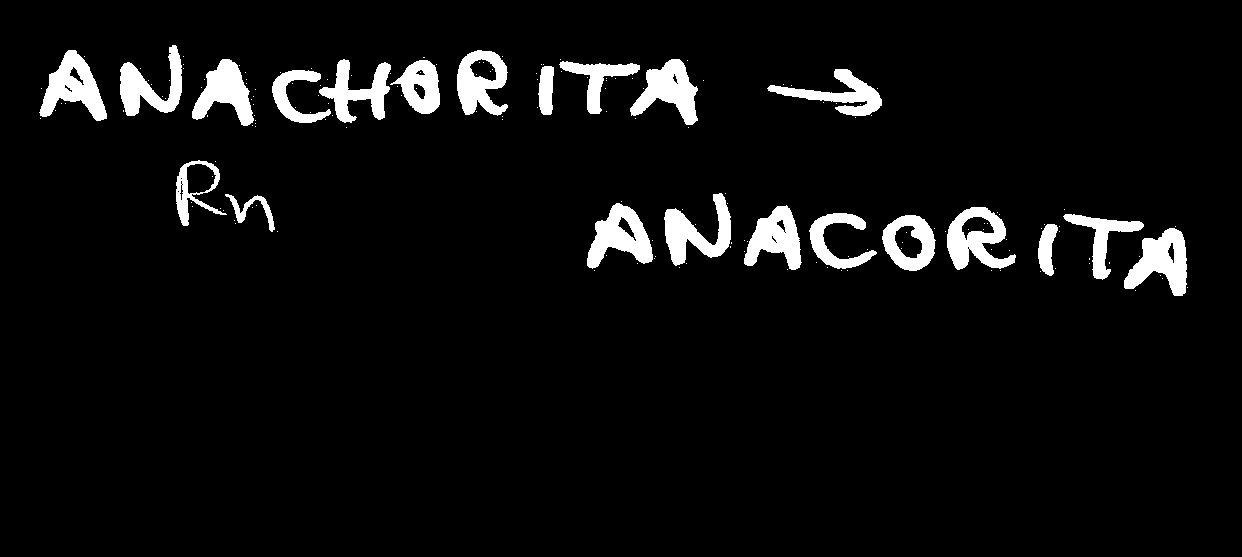 ANACHORITA →
Rn
ANACORITA